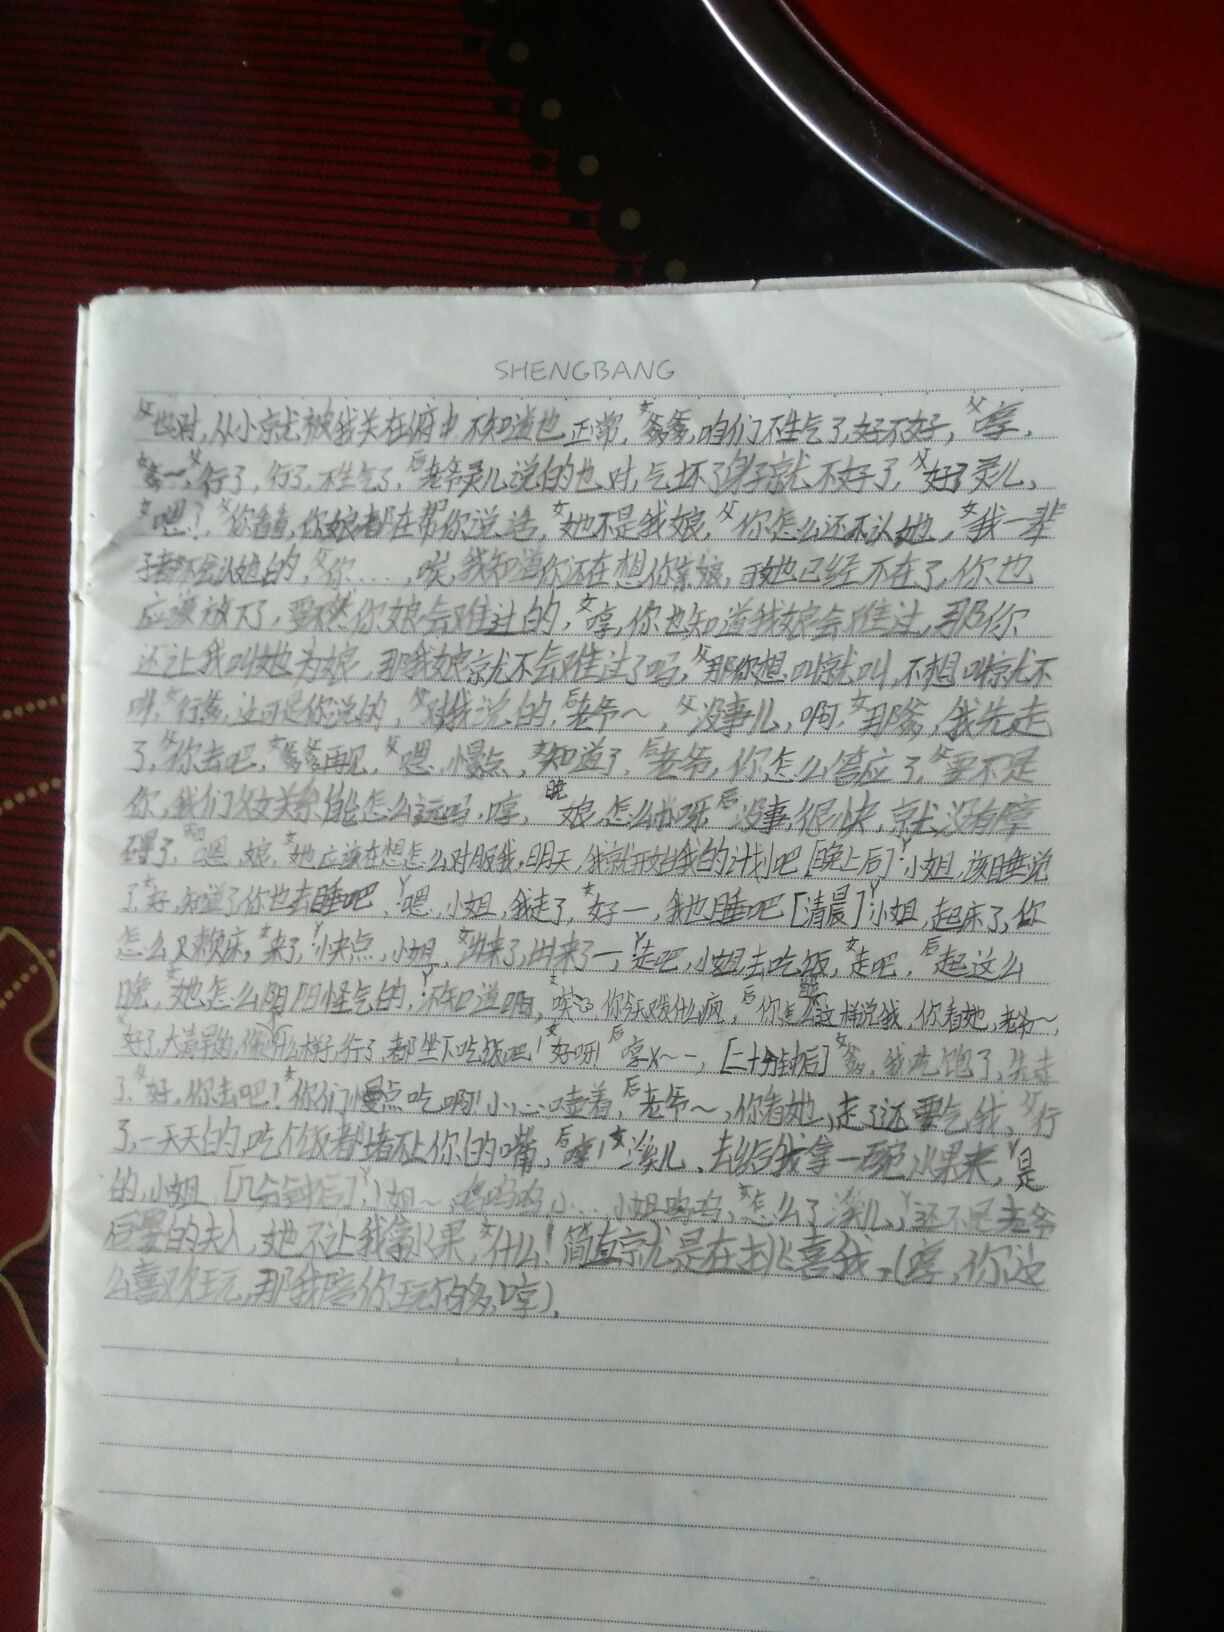 SHENGBANG
父也对,从小就被我关在府中不知道也正常,女爹爹,咱们不生气了,好不好,父哼,
女爹一,父行了,行了,不生气了,后老爷灵儿说的也对,气坏了身子就不好了,父好了灵儿,
女嗯?父你看看,你娘都在帮你说话,女她不是我娘,父你怎么还不认她,女我一辈
子都不会认她的,父你……,唉,我知道你还在想你亲娘,可她已经不在了,你也
应该放下了,要不然你娘会难过的,女哼,你也知道我娘会难过,那你
还让我叫她为娘,那我娘就不会难过了吗,父那你想叫就叫,不想叫就不
叫,女行爹,这可是你说的,父对我说的,后老爷~,父没事儿,啊,女那爹,我先走
了,父你去吧,女爹爹再见,父嗯,慢点,女知道了,后老爷,你怎么答应了,父要不是
你,我们父女关系能怎么远吗,哼,晚娘,怎么办呀后没事,很快,就没有障
碍了,嗯,娘,女她应该在想怎么对服我,明天,我就开始我的计划吧[晚上后]丫小姐,该睡说
了,女好,知道了你也去睡吧,丫嗯,小姐,我走了,女好一,我也睡吧[清晨]丫小姐,起床了,你
怎么又赖床,女来了,丫快点,小姐,女出来了,出来了一,丫走吧,小姐去吃饭,女走吧,后起这么
晚,女她怎么阴阳怪气的,丫不知道啊,女唉,你今天发什么疯,后你怎么这样说我,你看她,老爷~,
父好了,大清早的,像什么样子,行了,都坐下吃饭吧!女好呀!后哼x~一,[二十分钟后]女爹,我吃饱了,先走
了,父好,你去吧!女你们慢点吃啊!小心噎着,后老爷~,你看她,走了还要气我,父行
了,一天天的,吃个饭都堵不上你的嘴,后哼!女溪儿,去给我拿一碗水果来,丫是
的,小姐[几分钟后]丫小姐~,呜呜呜小…小姐呜呜,女怎么了溪儿,丫还不是老爷
后娶的夫人,她不让我拿水果,女什么!简直就是在挑喜我,(哼,你这
么喜欢玩,那我陪你玩个够,哼)。